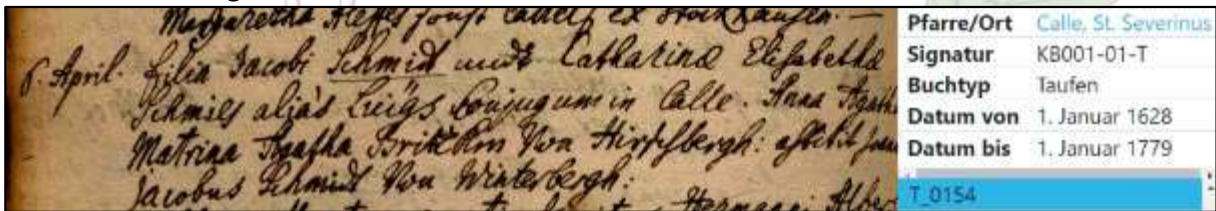 Margaretha
6. April. filia Jacobi Schmid undt Catharinæ Elisabethæ
Schmies aliàs Luigs Conjugum in Calle. Anna Agatha
Matrina Agatha Von Hirschbergh: astitit
Jacobus Schmidt Von Winterbergh:
Hermanni
Pfarre/Ort Calle, St. Severinus
Signatur KB001-01-T
Buchtyp Taufen
Datum von 1. Januar 1628
Datum bis 1. Januar 1779
T_0154